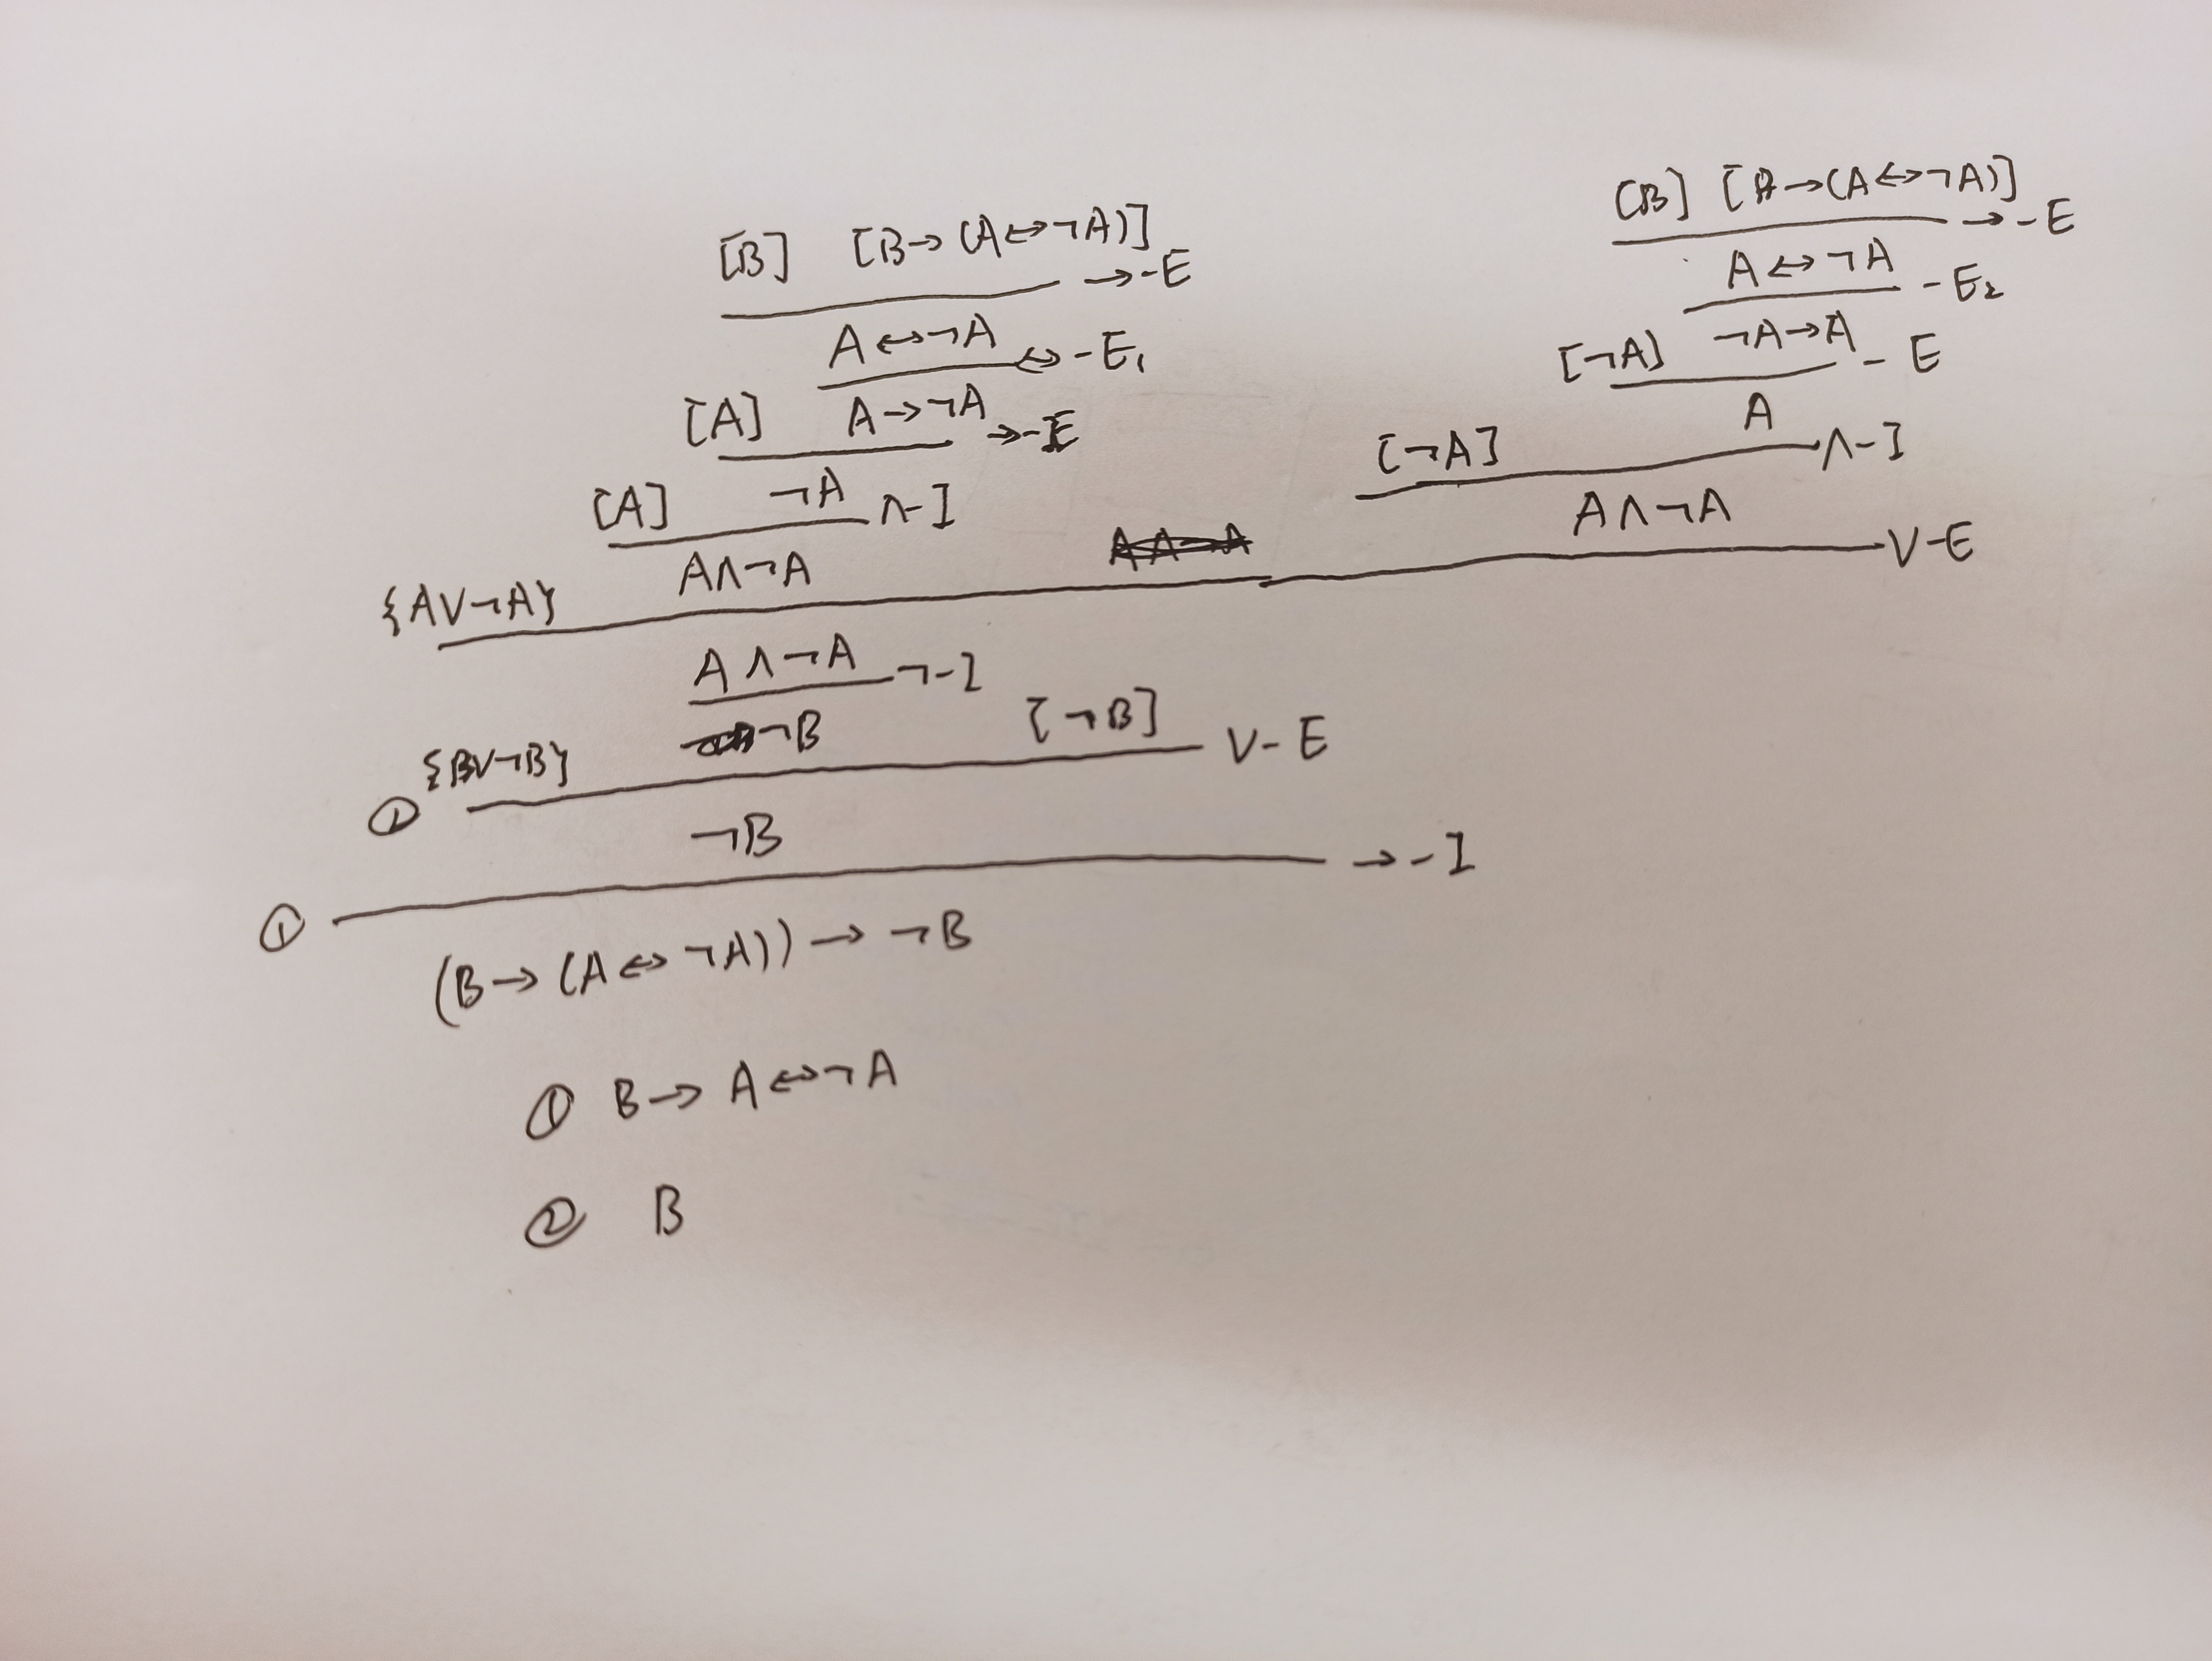 [B] [B→(A↔¬A)] →-E
A↔¬A ↔-E₁
[A] A→¬A →-E
[A] ¬A ∧-I
{A∨¬A} A∧¬A
[B] [B→(A↔¬A)] →-E
A↔¬A -E₂
[¬A] ¬A→A -E
[¬A] A ∧-I
A∧¬A ∨-E
A∧¬A ¬-I
② {B∨¬B} ¬B [¬B] ∨-E
¬B
① →-I
(B→(A↔¬A))→¬B
① B→A↔¬A
② B